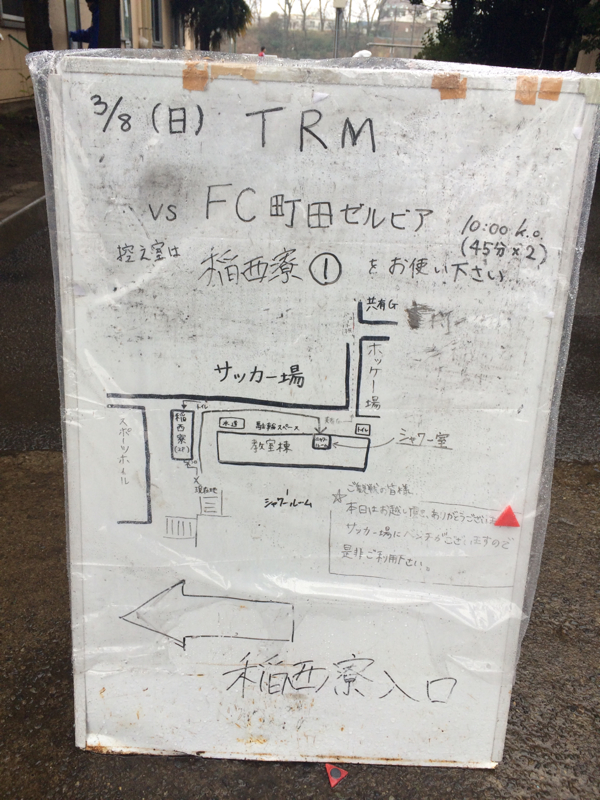 3/8 (日) TRM
vs FC町田ゼルビア
10:00 k.o.
(45分×2)
控え室は 稲西寮 ① をお使い下さい
共有G
ホッケー場
サッカー場
トイレ
稲西寮
スポーツホール
水道
駐輪スペース
トイレ
教室棟
シャワー室
現在地
シャワールーム
☆ ご観戦の皆様
本日はお越し頂き、ありがとうございます
サッカー場にベンチがございますので
是非ご利用下さい。
稲西寮入口